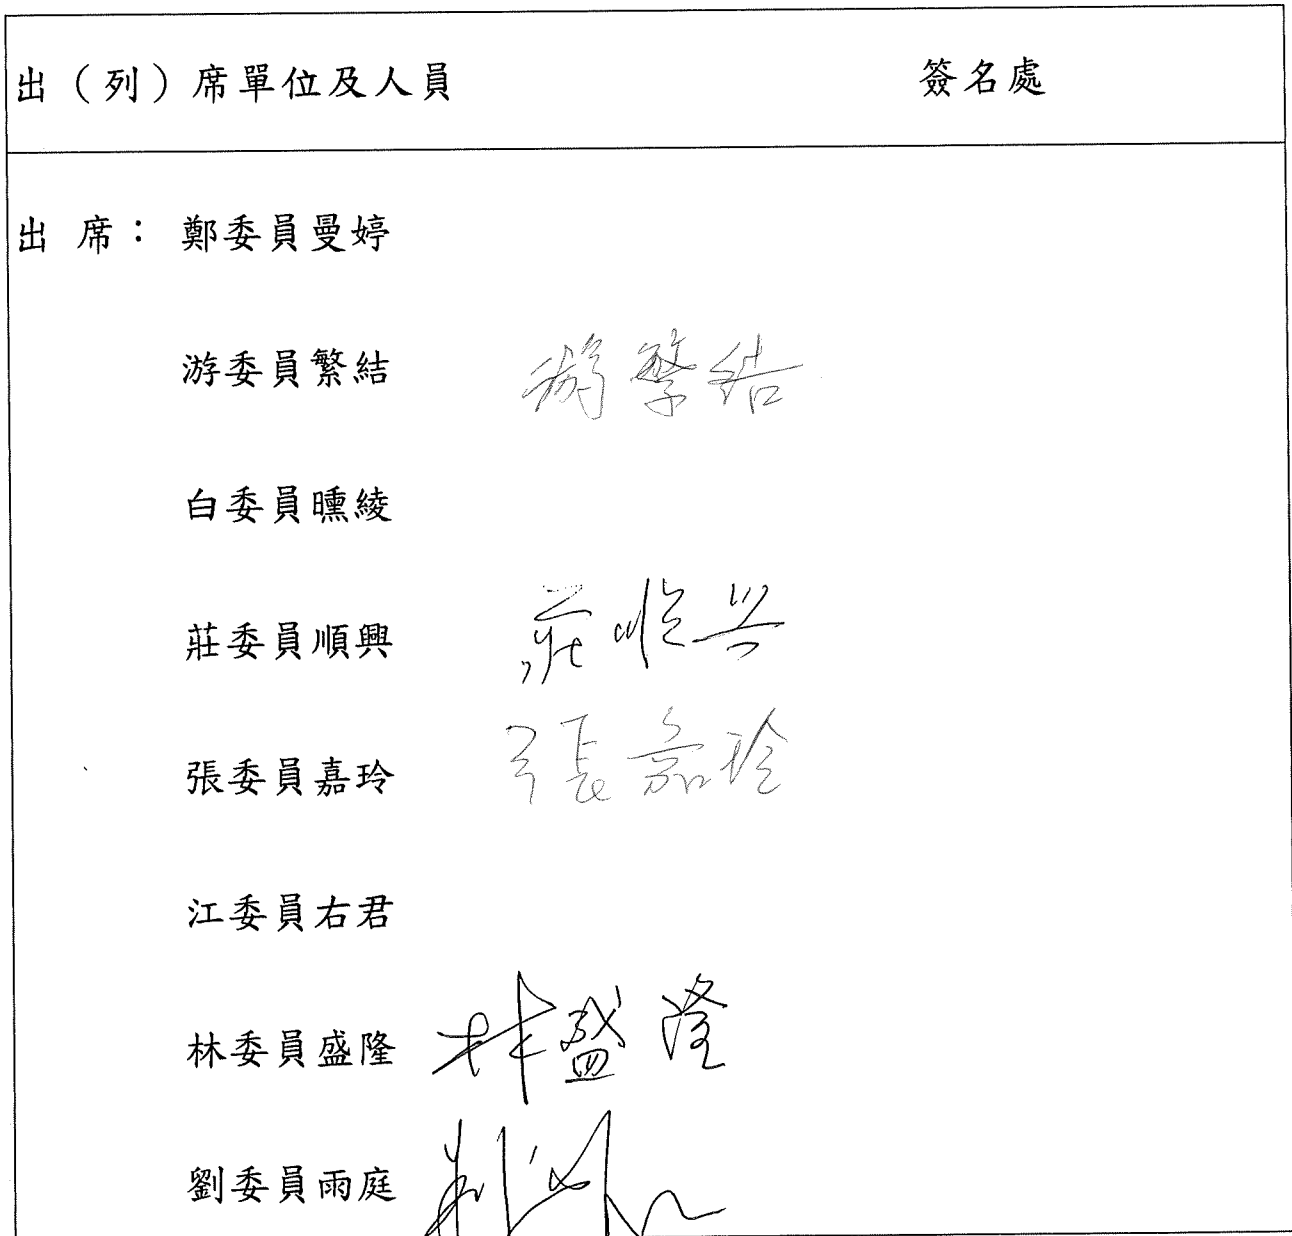 出（列）席單位及人員 簽名處
出 席： 鄭委員曼婷
游委員繁結 游繁結
白委員曛綾
莊委員順興 莊順兴
張委員嘉玲 張嘉玲
江委員右君
林委員盛隆 林盛隆
劉委員雨庭